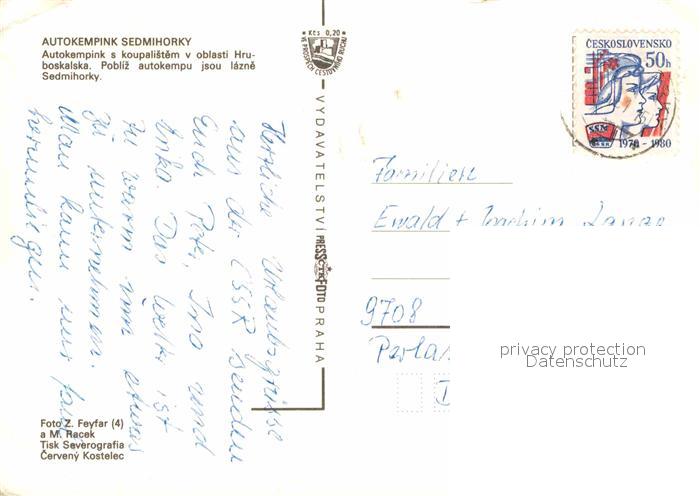 AUTOKEMPINK SEDMIHORKY
Autokempink s koupalištěm v oblasti Hru-
boskalska. Poblíž autokempu jsou lázně
Sedmihorky.
Kčs 0,20
VE PROSPĚCH CESTOVNÍHO RUCHU
VYDAVATELSTVÍ PRESSFOTO PRAHA
ČTK
ČESKOSLOVENSKO
50h
SSM
1970 - 1980
Herzliche Urlaubsgrüsse
aus der ČSSR senden
Euch Peter, Ina und
Anka. Das Wetter ist
zu warm um etwas
zu unternehmen.
Man kann nur faul
herumliegen.
Familien
Ewald + Joachim Lange
9708
privacy protection
Datenschutz
Foto Z. Feyfar (4)
a M. Racek
Tisk Severografia
Červený Kostelec